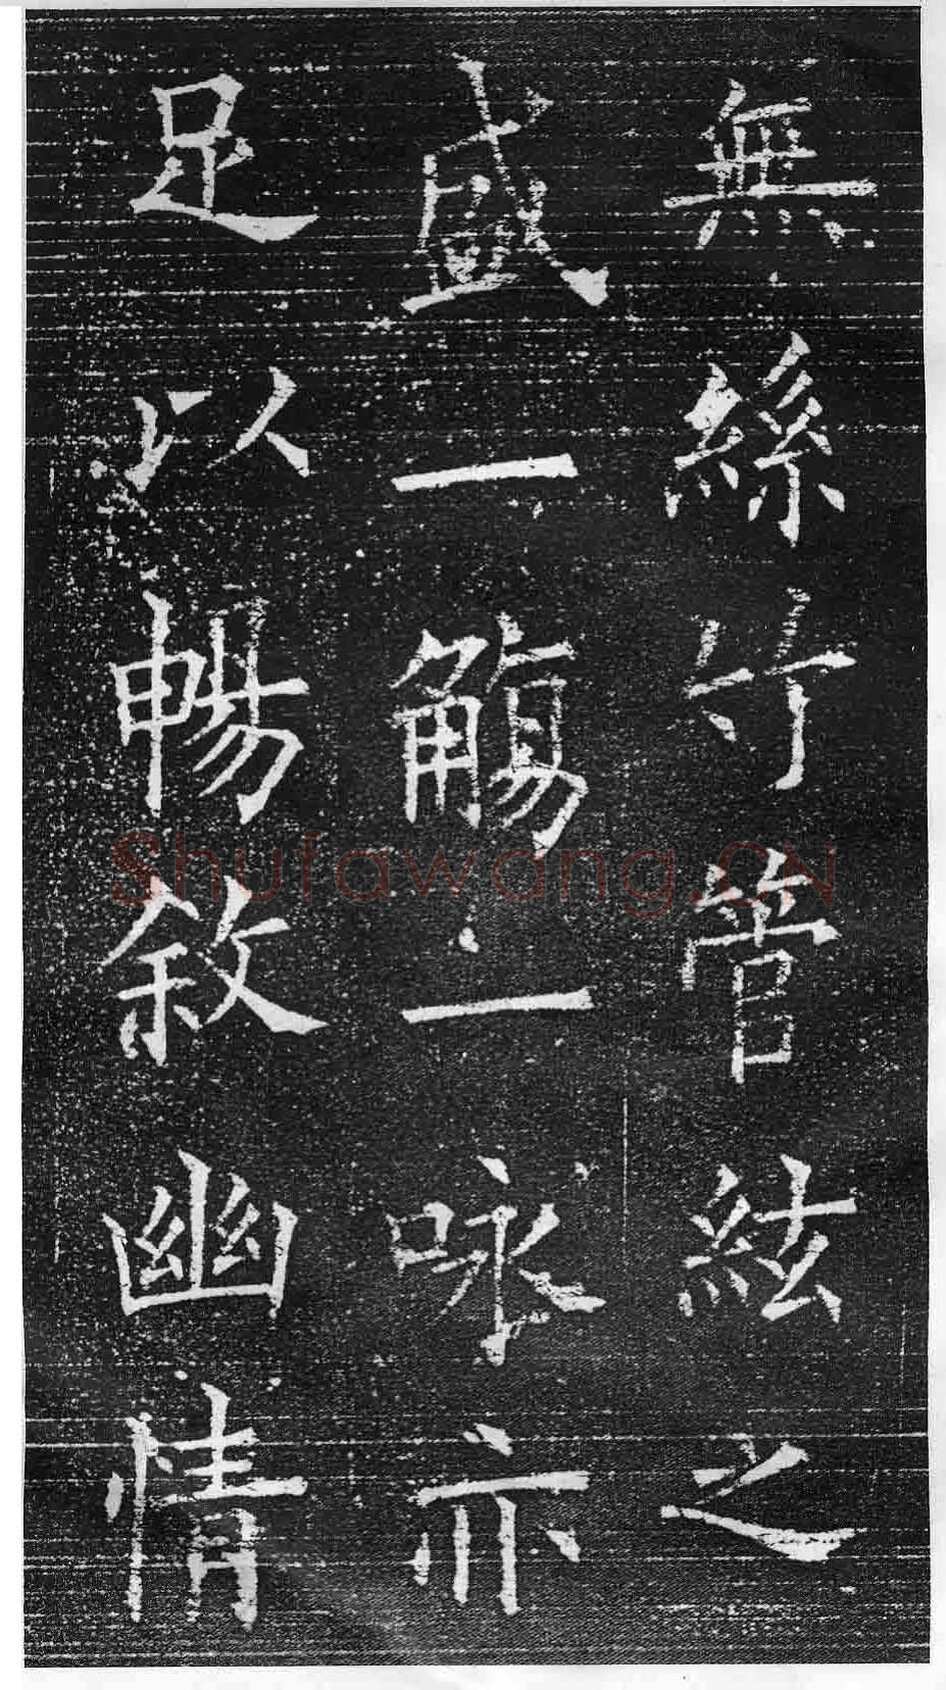 無絲竹管絃之
盛一觴一咏亦
足以暢敘幽情
Shufawang.CN